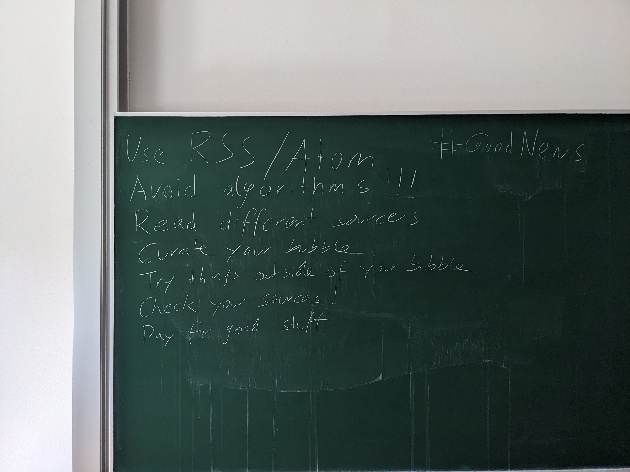 Use RSS/Atom
#GoodNews
Avoid algorithms !!!
Read different sources
Curate your bubble
Try things outside of your bubble
Check your sources!
Pay for good stuff